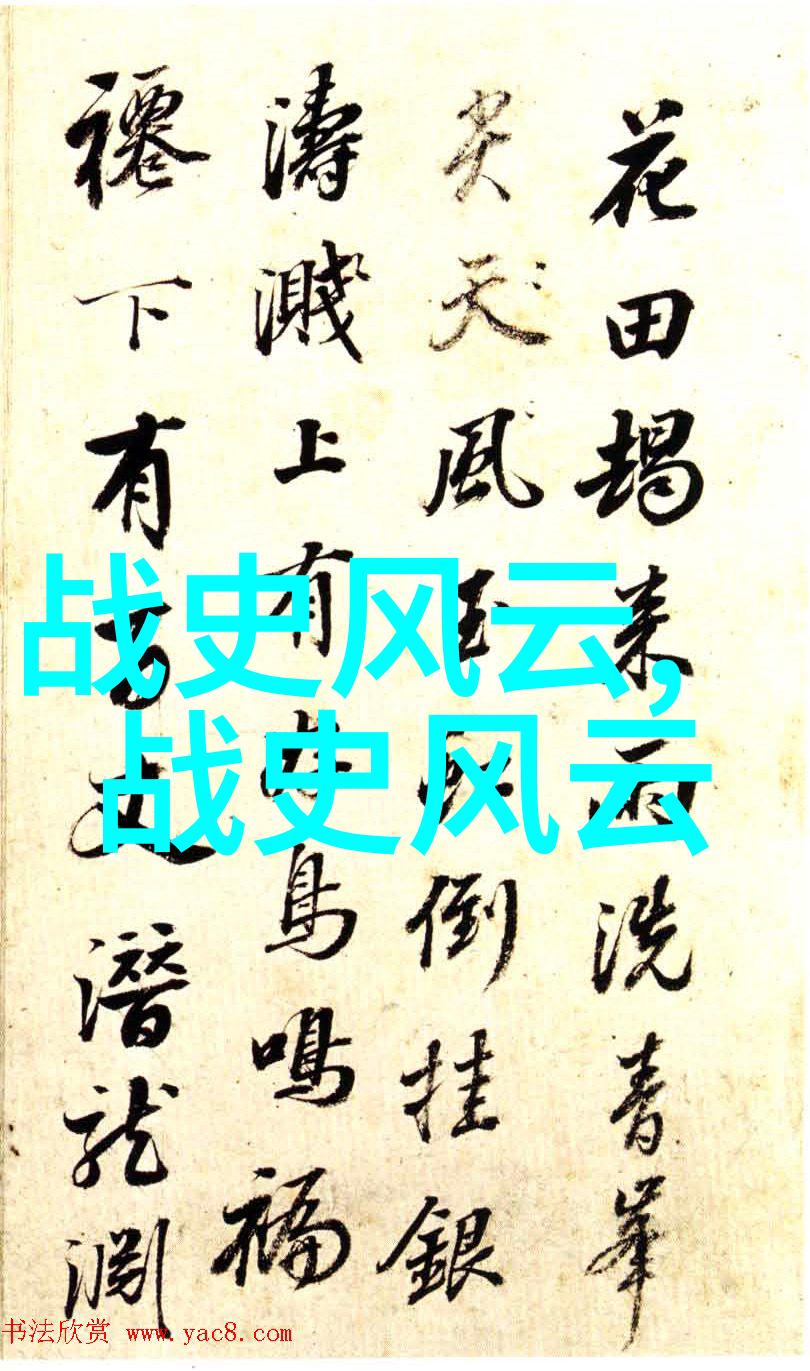 花田朅来雨洗青峯
尖天風玉倒挂銀
濤濺上有鳥鳴福
下有丈潛龍淵
战史风云,
战史风云
书法欣赏 www.yac8.com